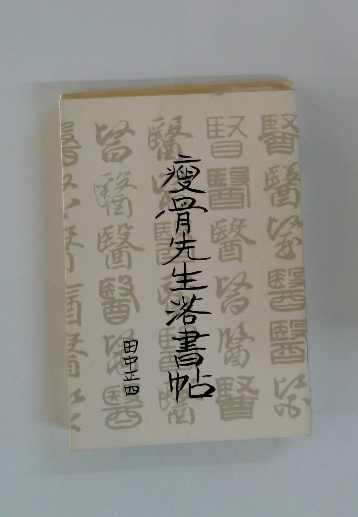 瘦骨先生落書帖
田中正四